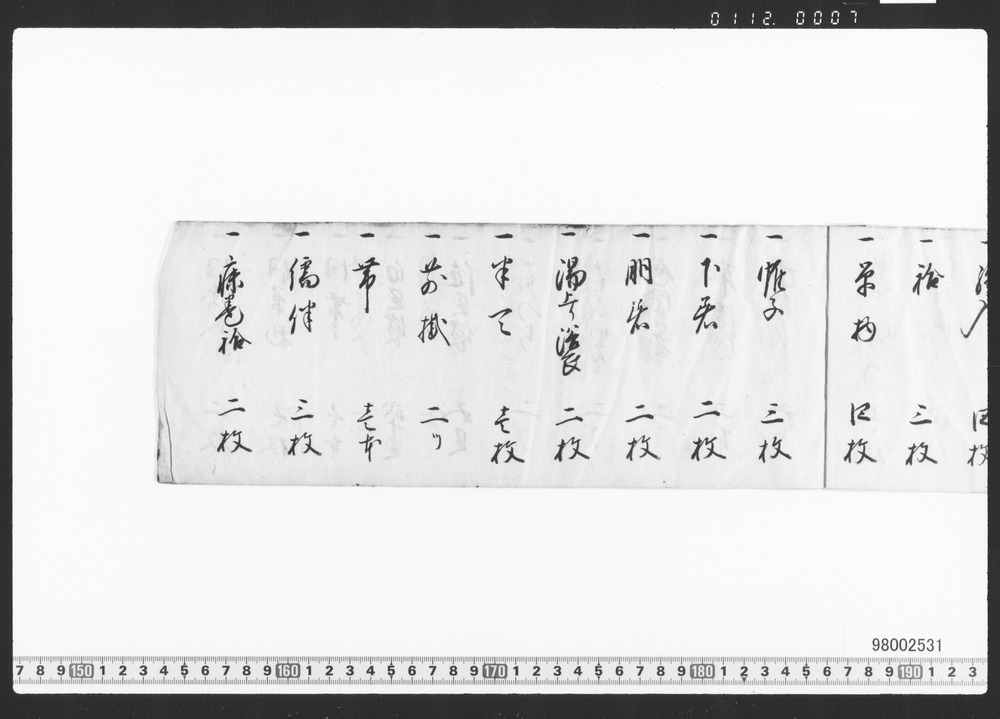 0112.0007
一 綿入 四枚
一 袷 三枚
一 単物 四枚
一 帷子 三枚
一 下着 二枚
一 胴着 二枚
一 湯上浴衣 二枚
一 半天 壱枚
一 前掛 二ツ
一 帯 壱本
一 襦伴 三枚
一 寐巻袷 二枚
98002531
7 8 9 150 1 2 3 4 5 6 7 8 9 160 1 2 3 4 5 6 7 8 9 170 1 2 3 4 5 6 7 8 9 180 1 2 3 4 5 6 7 8 9 190 1 2 3